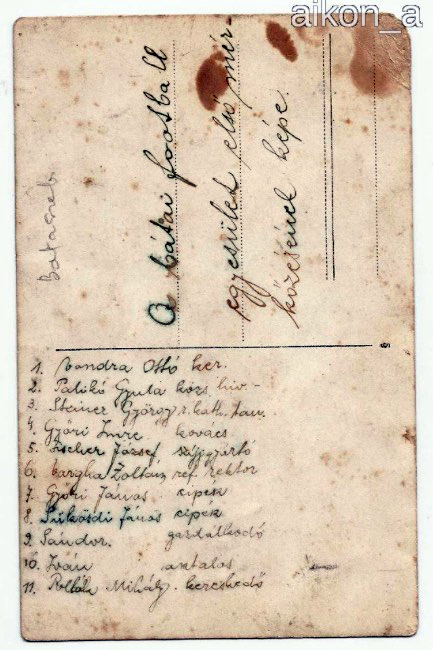 aikon_a
A bátai football
egyesület első mér-
kőzésének képe.
Bataszék
1. Vondra Ottó ker.
2. Patikó Gyula közs. hiv.-
3. Steiner György r. kath. tan.
4. Győri Imre kovács
5. Fischer József szíjgyártó
6. Vargha Zoltán ref. rektor
7. Győri János cipész
8. Sükösdi János cipész
9. Sándor. gazdálkodó
10. Iván asztalos
11. Pollák Mihály kereskedő